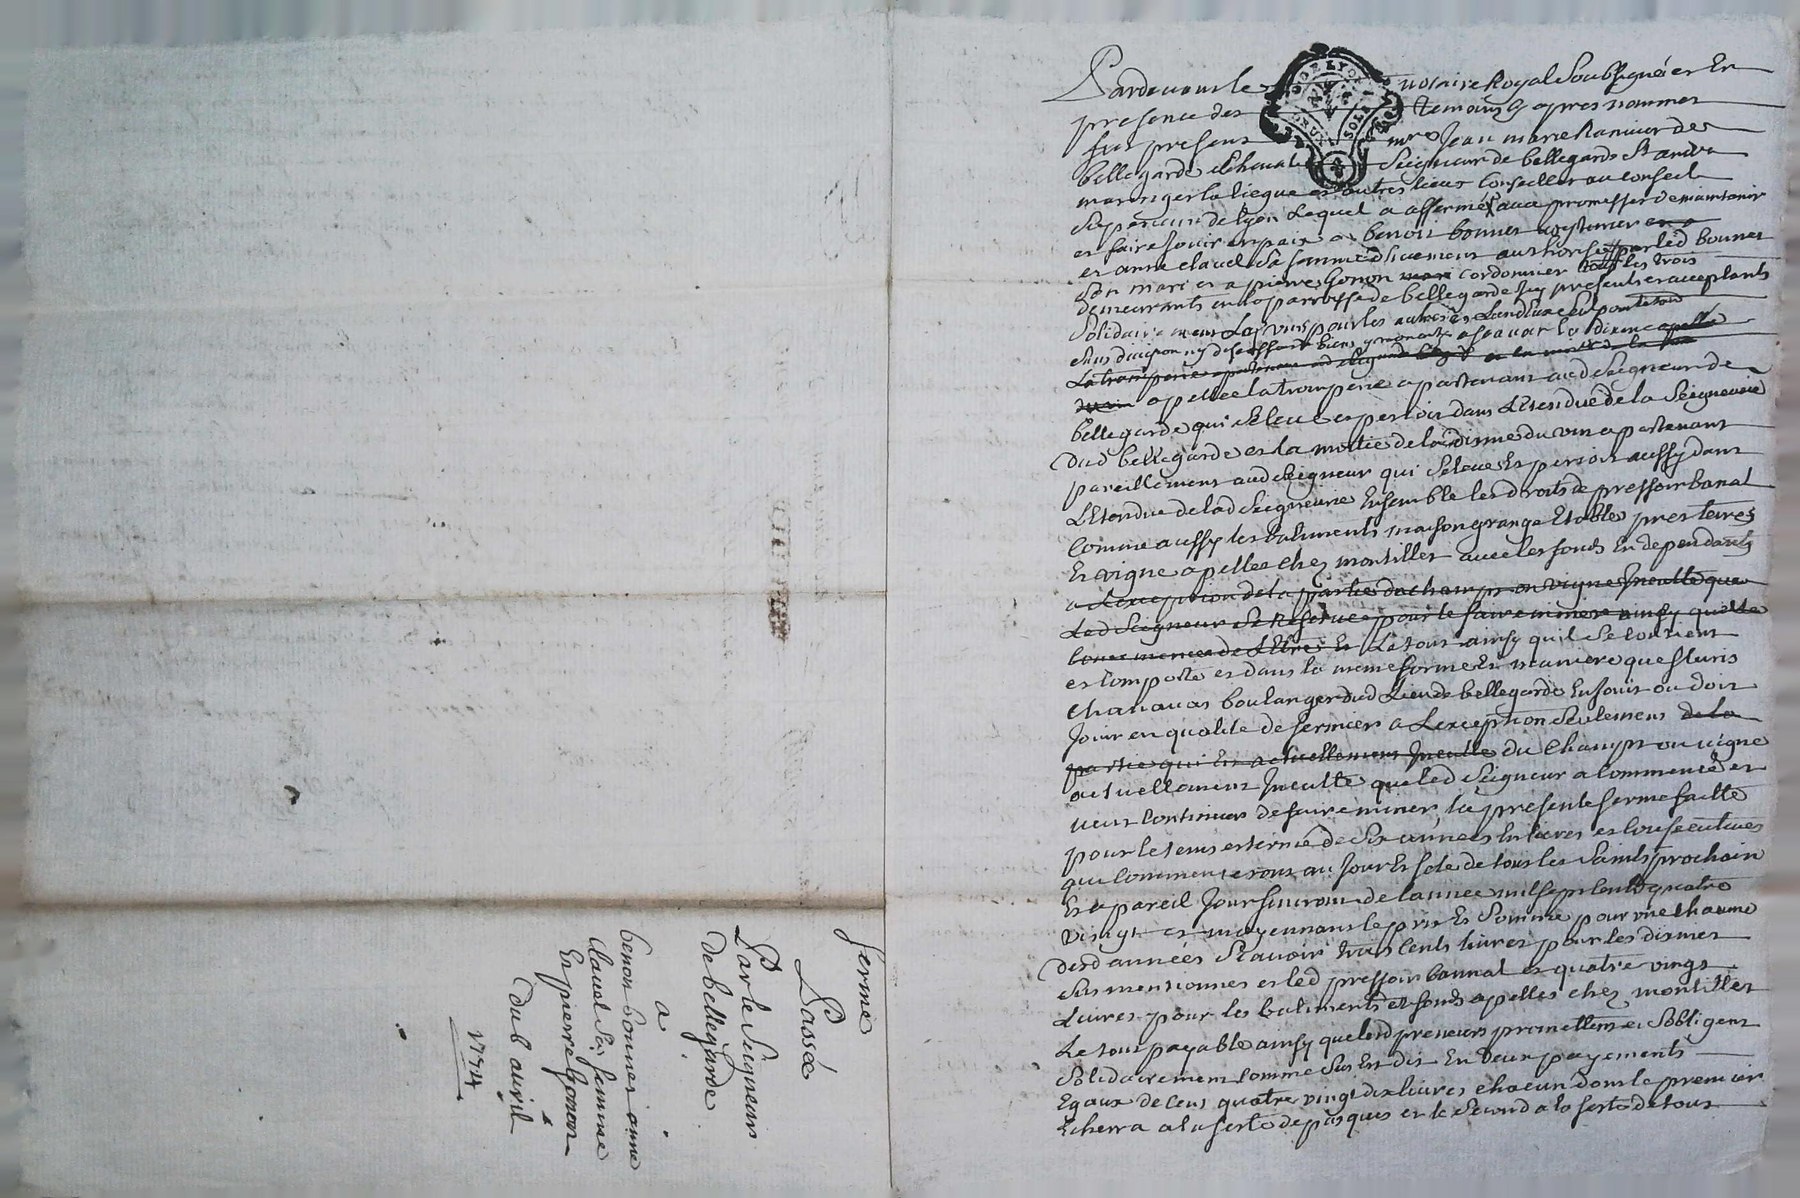 Pardevant le notaire Royal Soubsigné et En
presence des temoins apres nommes
fut present mre Jean marie Ranvier de
bellegarde chevalier Seigneur de bellegarde St andré
maringes la lieque et autres lieux Conseiller au conseil
Superieur de Lyon Lequel a affermé avec promesses de maintenir
et faire Jouir en paix a benoit bonnet
et anne claud Sa femme dhuement authorisée par led bonnet
Son mari et a pierre Gonon cordonnier tous les trois
demeurants en la parroisse de bellegarde Icy presents et acceptants
Solidairement Les uns pour les autres Lun deux Seul pour le tout
Sans division ny discussion biens a scavoir la dixme
La tromperie
apellée la tromperie apartenant aud Seigneur de
bellegarde qui Seleve et persoit dans Létendue de la Seigneurie
dud bellegarde et la moitié de la disme du vin apartenant
pareillement aud Seigneur qui Seleve Et persoit aussy dans
LEtendue de lad Seigneurie Ensemble les droits de pressoir banal
Comme aussy les batiments maison grange Etable pres terres
Et vigne apellee chez montillet avec les fonds En dependants
a Lexception de la partie du champ ou vigne Inculte que
Led Seigneur Se Reserve pour le faire miner ainsy quil a
commencé de Letre Et Le tout ainsy quil Se contient
et Comporte et dans la meme forme Et maniere que fleuris
chanavas boulanger dud Lieu de bellegarde En Jouit ou doit
Jouir en qualité de fermier a Lexception Seulement de la
partie qui Est actuellement Inculte du Champt ou vigne
actuellement Inculte que led Seigneur a Commencé et
veut Continuer de faire miner, la presente ferme faitte
pour le tems et terme de Six années Entieres et Consecutives
qui Commenceront au Jour Et fete de tous les Saints prochain
Et a pareil Jour finiront de lannee mil sept cents quatre
vingt et moyennant le prix Et Somme pour une chaqune
desd années Scavoir trois Cents livres pour les dixmes
Sus mentionnes et led pressoir bannal et quatre vingt
Livres pour les batiments et fonds apelles chez montillet
Le tout payable ainsy que lesd preneurs promettent et Sobligent
Solidairement comme Sus Est dit En deux payements
Egaux de Cent quatre vingt dix livres chacun dont le premier
Echerra a la feste de pasques et le Second a la feste de tous
ferme
Passée
Par le Seigneur
De bellegarde
a
benoit bonnet anne
claud Sa femme
Et pierre Gonon
Du 6 avril
1774